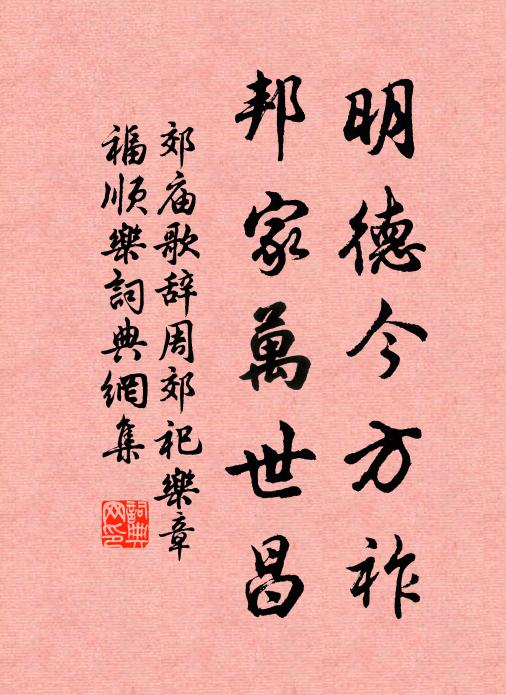 明德今方祚
邦家萬世昌
郊庙歌辞周郊祀樂章
福顺樂詞典網集
詞典网印